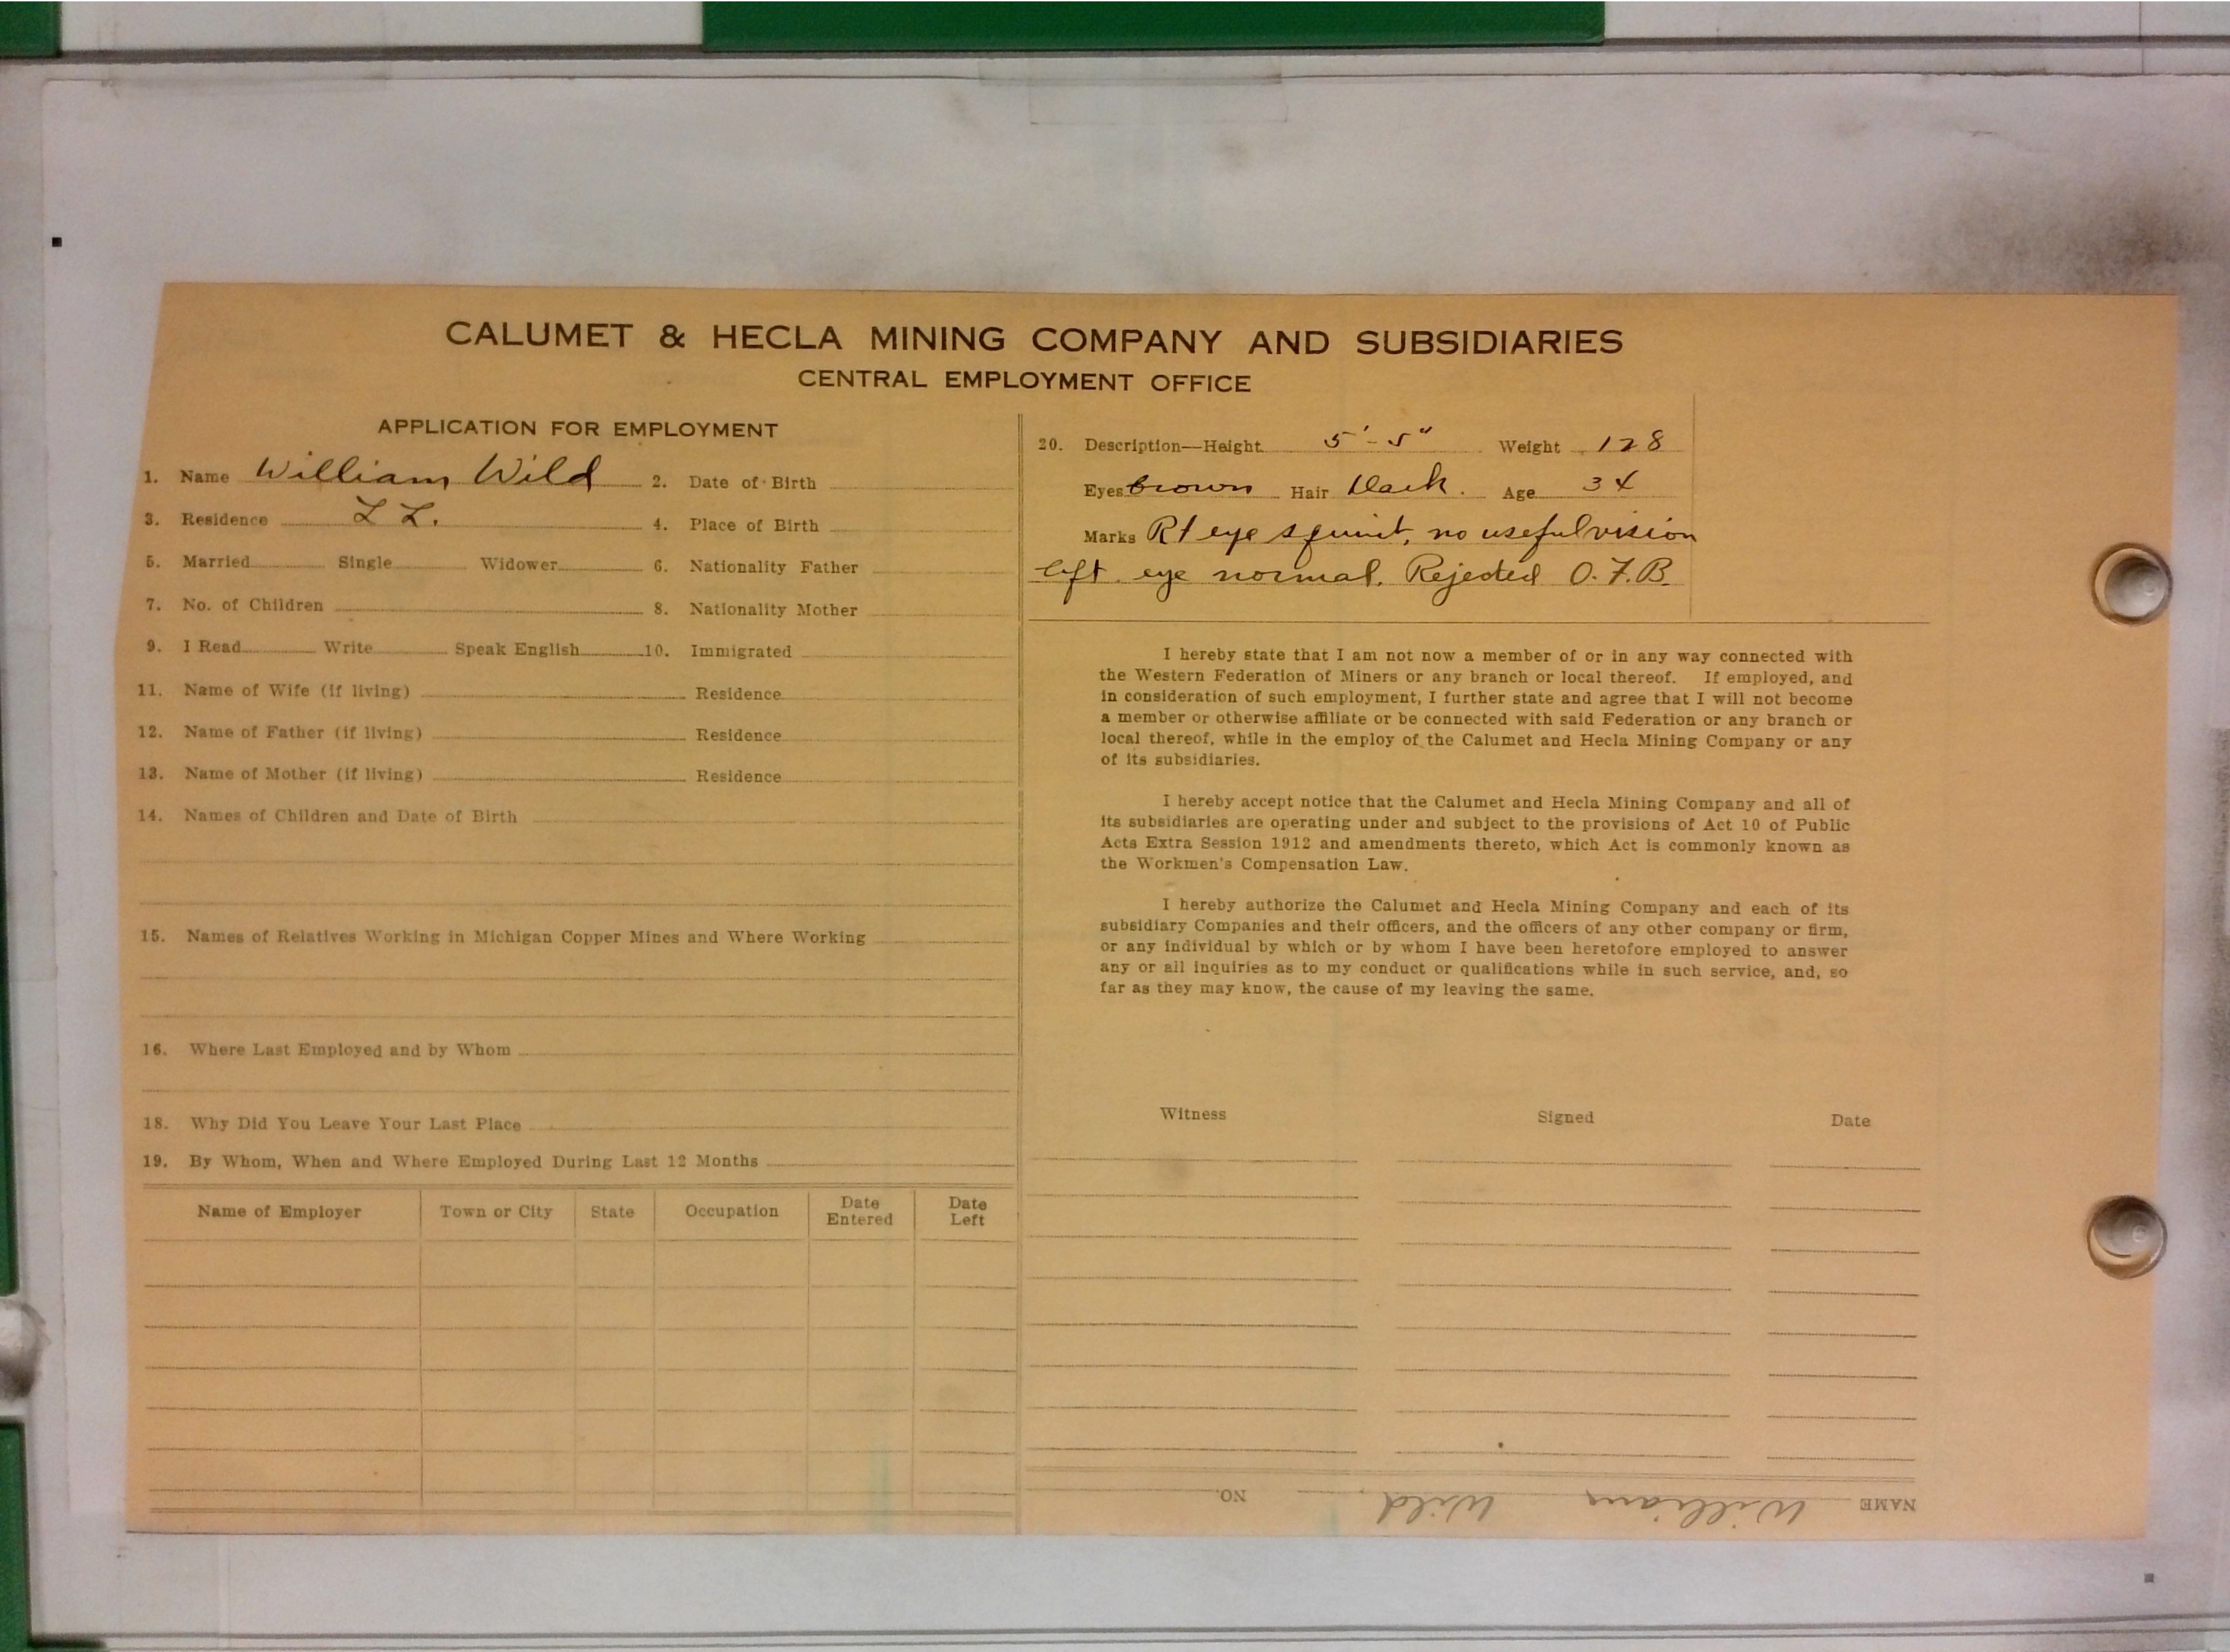 CALUMET & HECLA MINING COMPANY AND SUBSIDIARIES
CENTRAL EMPLOYMENT OFFICE
APPLICATION FOR EMPLOYMENT
1. Name William Wild 2. Date of Birth
3. Residence L L. 4. Place of Birth
5. Married Single Widower 6. Nationality Father
7. No. of Children 8. Nationality Mother
9. I Read Write Speak English 10. Immigrated
11. Name of Wife (if living) Residence
12. Name of Father (if living) Residence
13. Name of Mother (if living) Residence
14. Names of Children and Date of Birth
15. Names of Relatives Working in Michigan Copper Mines and Where Working
16. Where Last Employed and by Whom
18. Why Did You Leave Your Last Place
19. By Whom, When and Where Employed During Last 12 Months
Name of Employer Town or City State Occupation Date Entered Date Left
20. Description—Height 5'-5" Weight 128
Eyes brown Hair black. Age 34
Marks Rt eye squint, no useful vision
left eye normal. Rejected O.F.B.
I hereby state that I am not now a member of or in any way connected with
the Western Federation of Miners or any branch or local thereof. If employed, and
in consideration of such employment, I further state and agree that I will not become
a member or otherwise affiliate or be connected with said Federation or any branch or
local thereof, while in the employ of the Calumet and Hecla Mining Company or any
of its subsidiaries.
I hereby accept notice that the Calumet and Hecla Mining Company and all of
its subsidiaries are operating under and subject to the provisions of Act 10 of Public
Acts Extra Session 1912 and amendments thereto, which Act is commonly known as
the Workmen's Compensation Law.
I hereby authorize the Calumet and Hecla Mining Company and each of its
subsidiary Companies and their officers, and the officers of any other company or firm,
or any individual by which or by whom I have been heretofore employed to answer
any or all inquiries as to my conduct or qualifications while in such service, and, so
far as they may know, the cause of my leaving the same.
Witness Signed Date
NAME William Wild. NO.